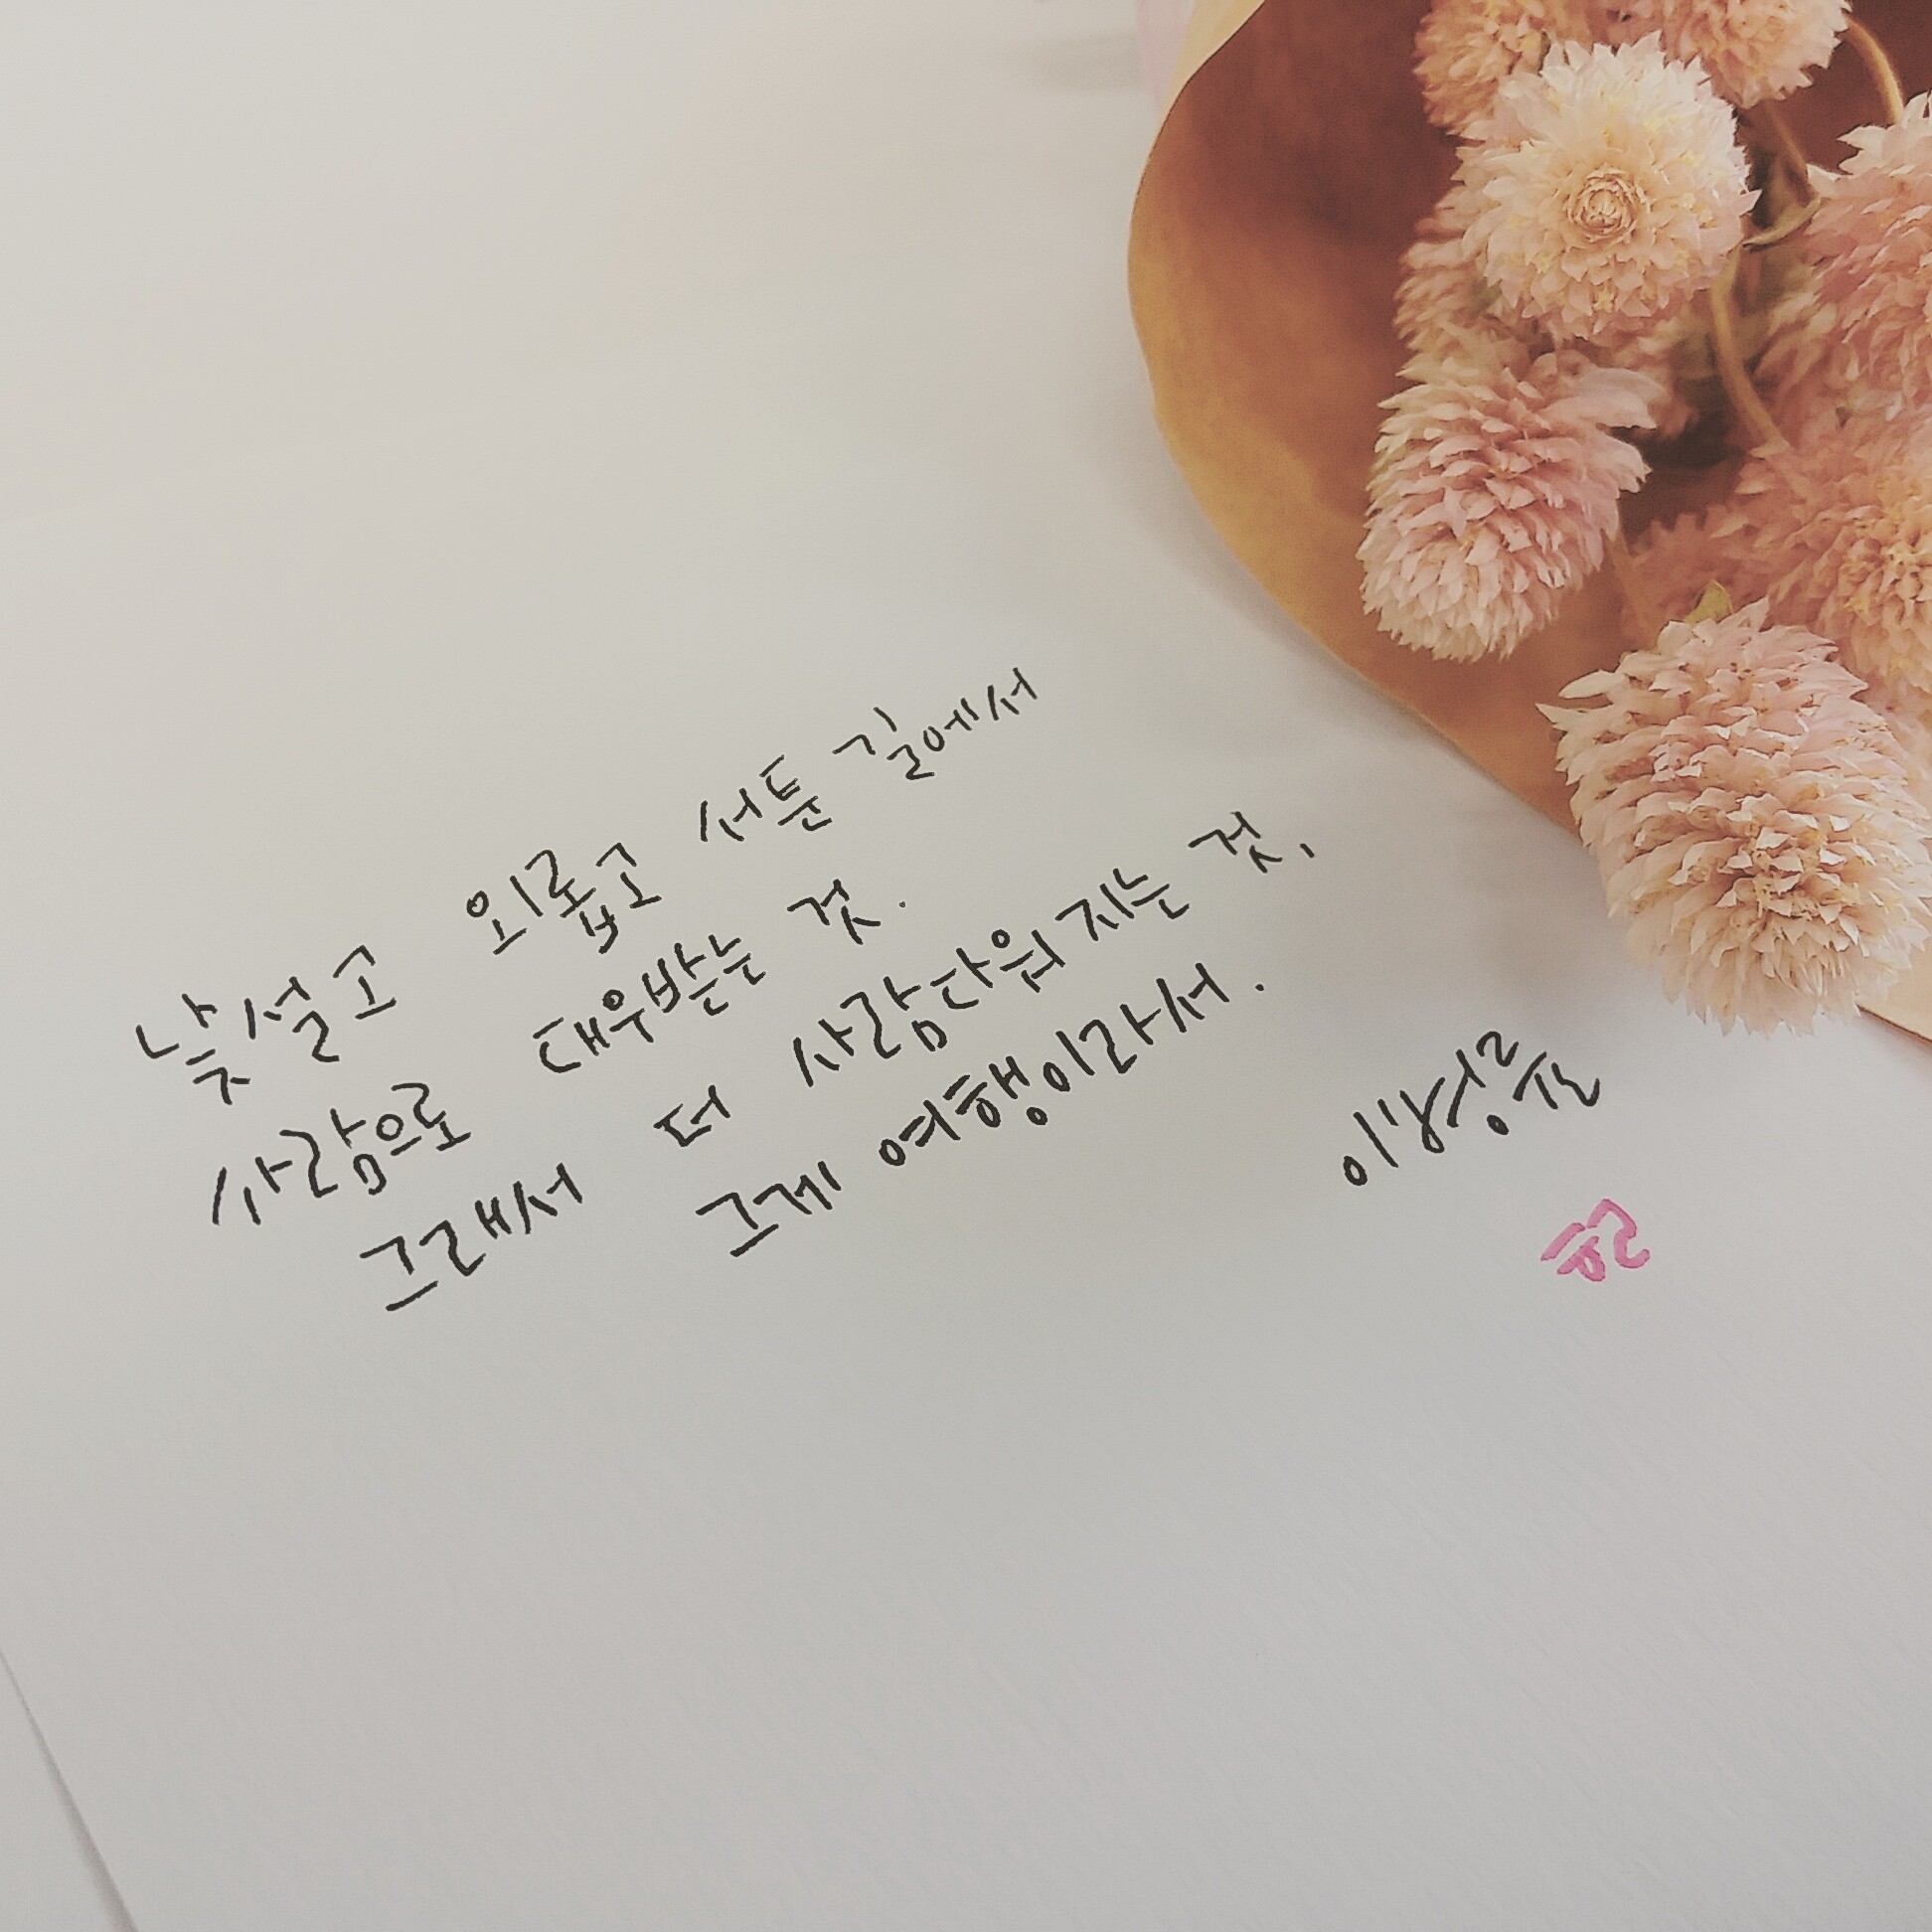 낯설고 외롭고 서툰 길에서
사람으로 대우받는 것.
그래서 더 사람다워지는 것,
그게 여행이라서.